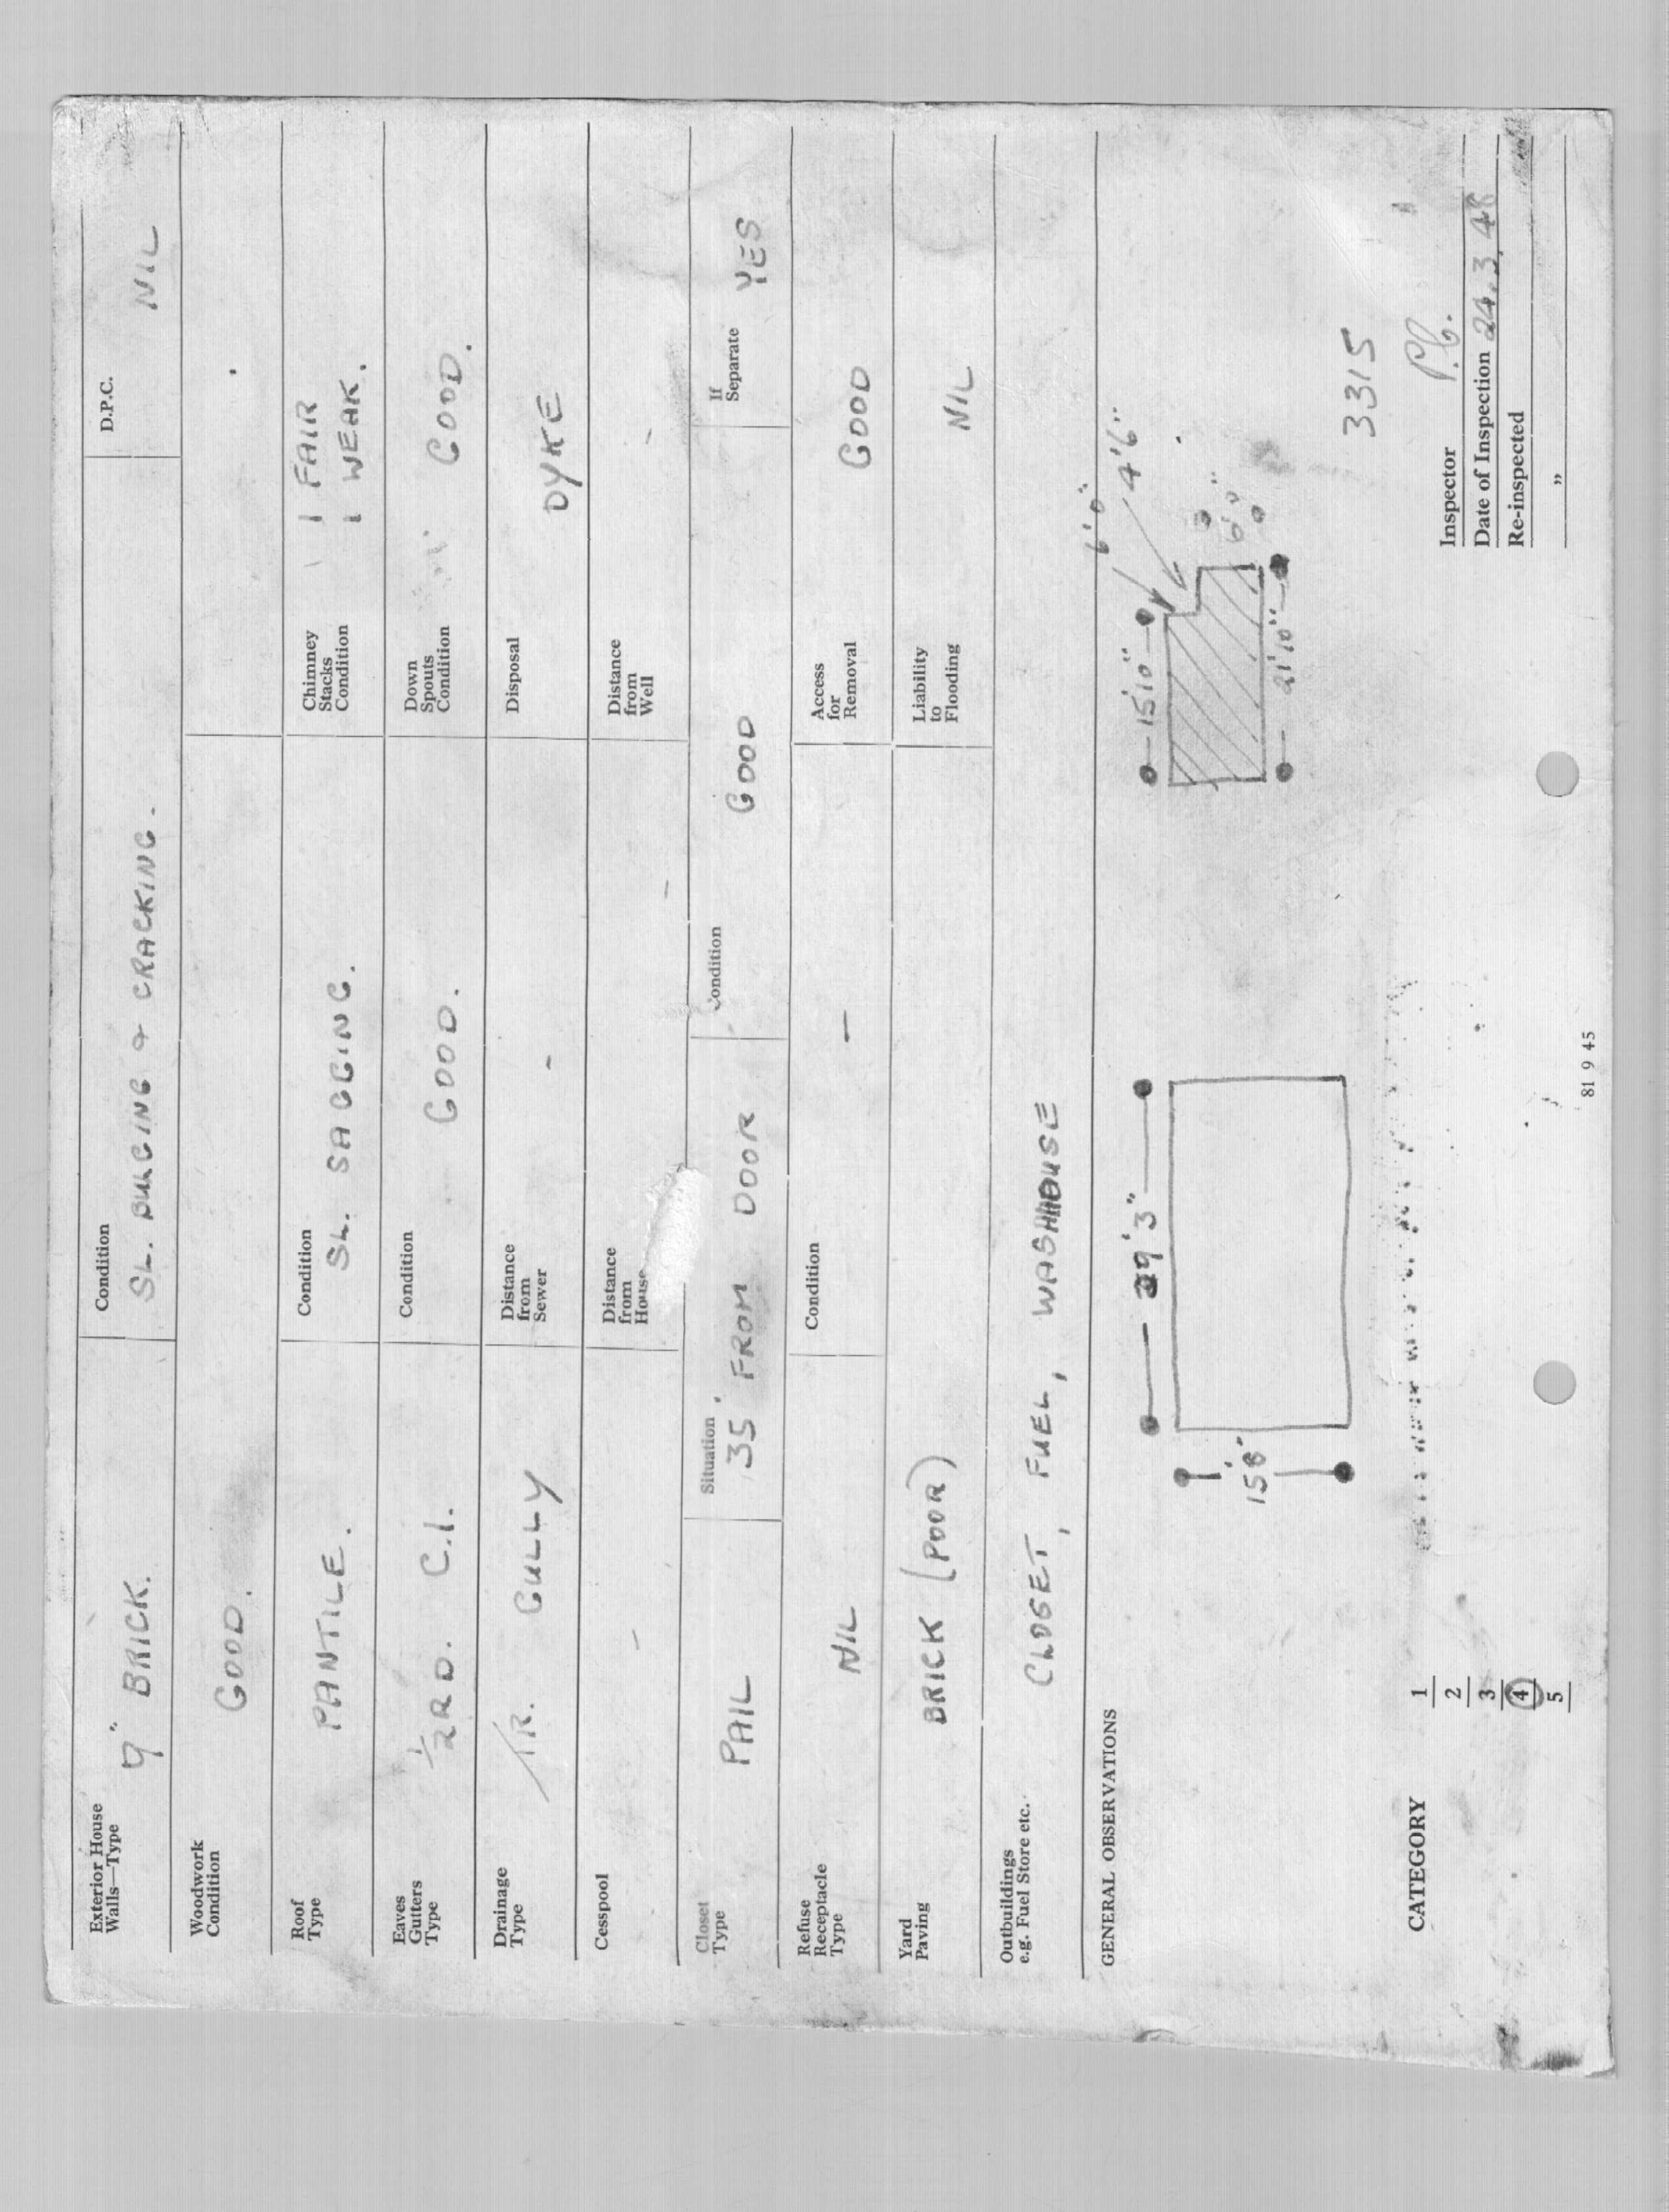 Exterior House Walls—Type 9" BRICK. Condition SL. BULGING & CRACKING. D.P.C. NIL
Woodwork Condition GOOD.
Roof Type PANTILE. Condition SL. SAGGING. Chimney Stacks Condition 1 FAIR 1 WEAK.
Eaves Gutters Type ½ RD. C.I. Condition GOOD. Down Spouts Condition GOOD.
Drainage Type TR. GULLY Distance from Sewer - Disposal DYKE
Cesspool - Distance from House - Distance from Well -
Closet Type PAIL Situation 35' FROM DOOR Condition GOOD If Separate YES
Refuse Receptacle Type NIL Condition - Access for Removal GOOD
Yard Paving BRICK (POOR) Liability to Flooding NIL
Outbuildings e.g. Fuel Store etc. CLOSET, FUEL, WASHHOUSE
GENERAL OBSERVATIONS
15'0" 6'0" 4'6"
6'0"
21'10"
3315
CATEGORY 1 2 3 4 5
Inspector P.B.
Date of Inspection 24.3.48
Re-inspected
"
81 9 45